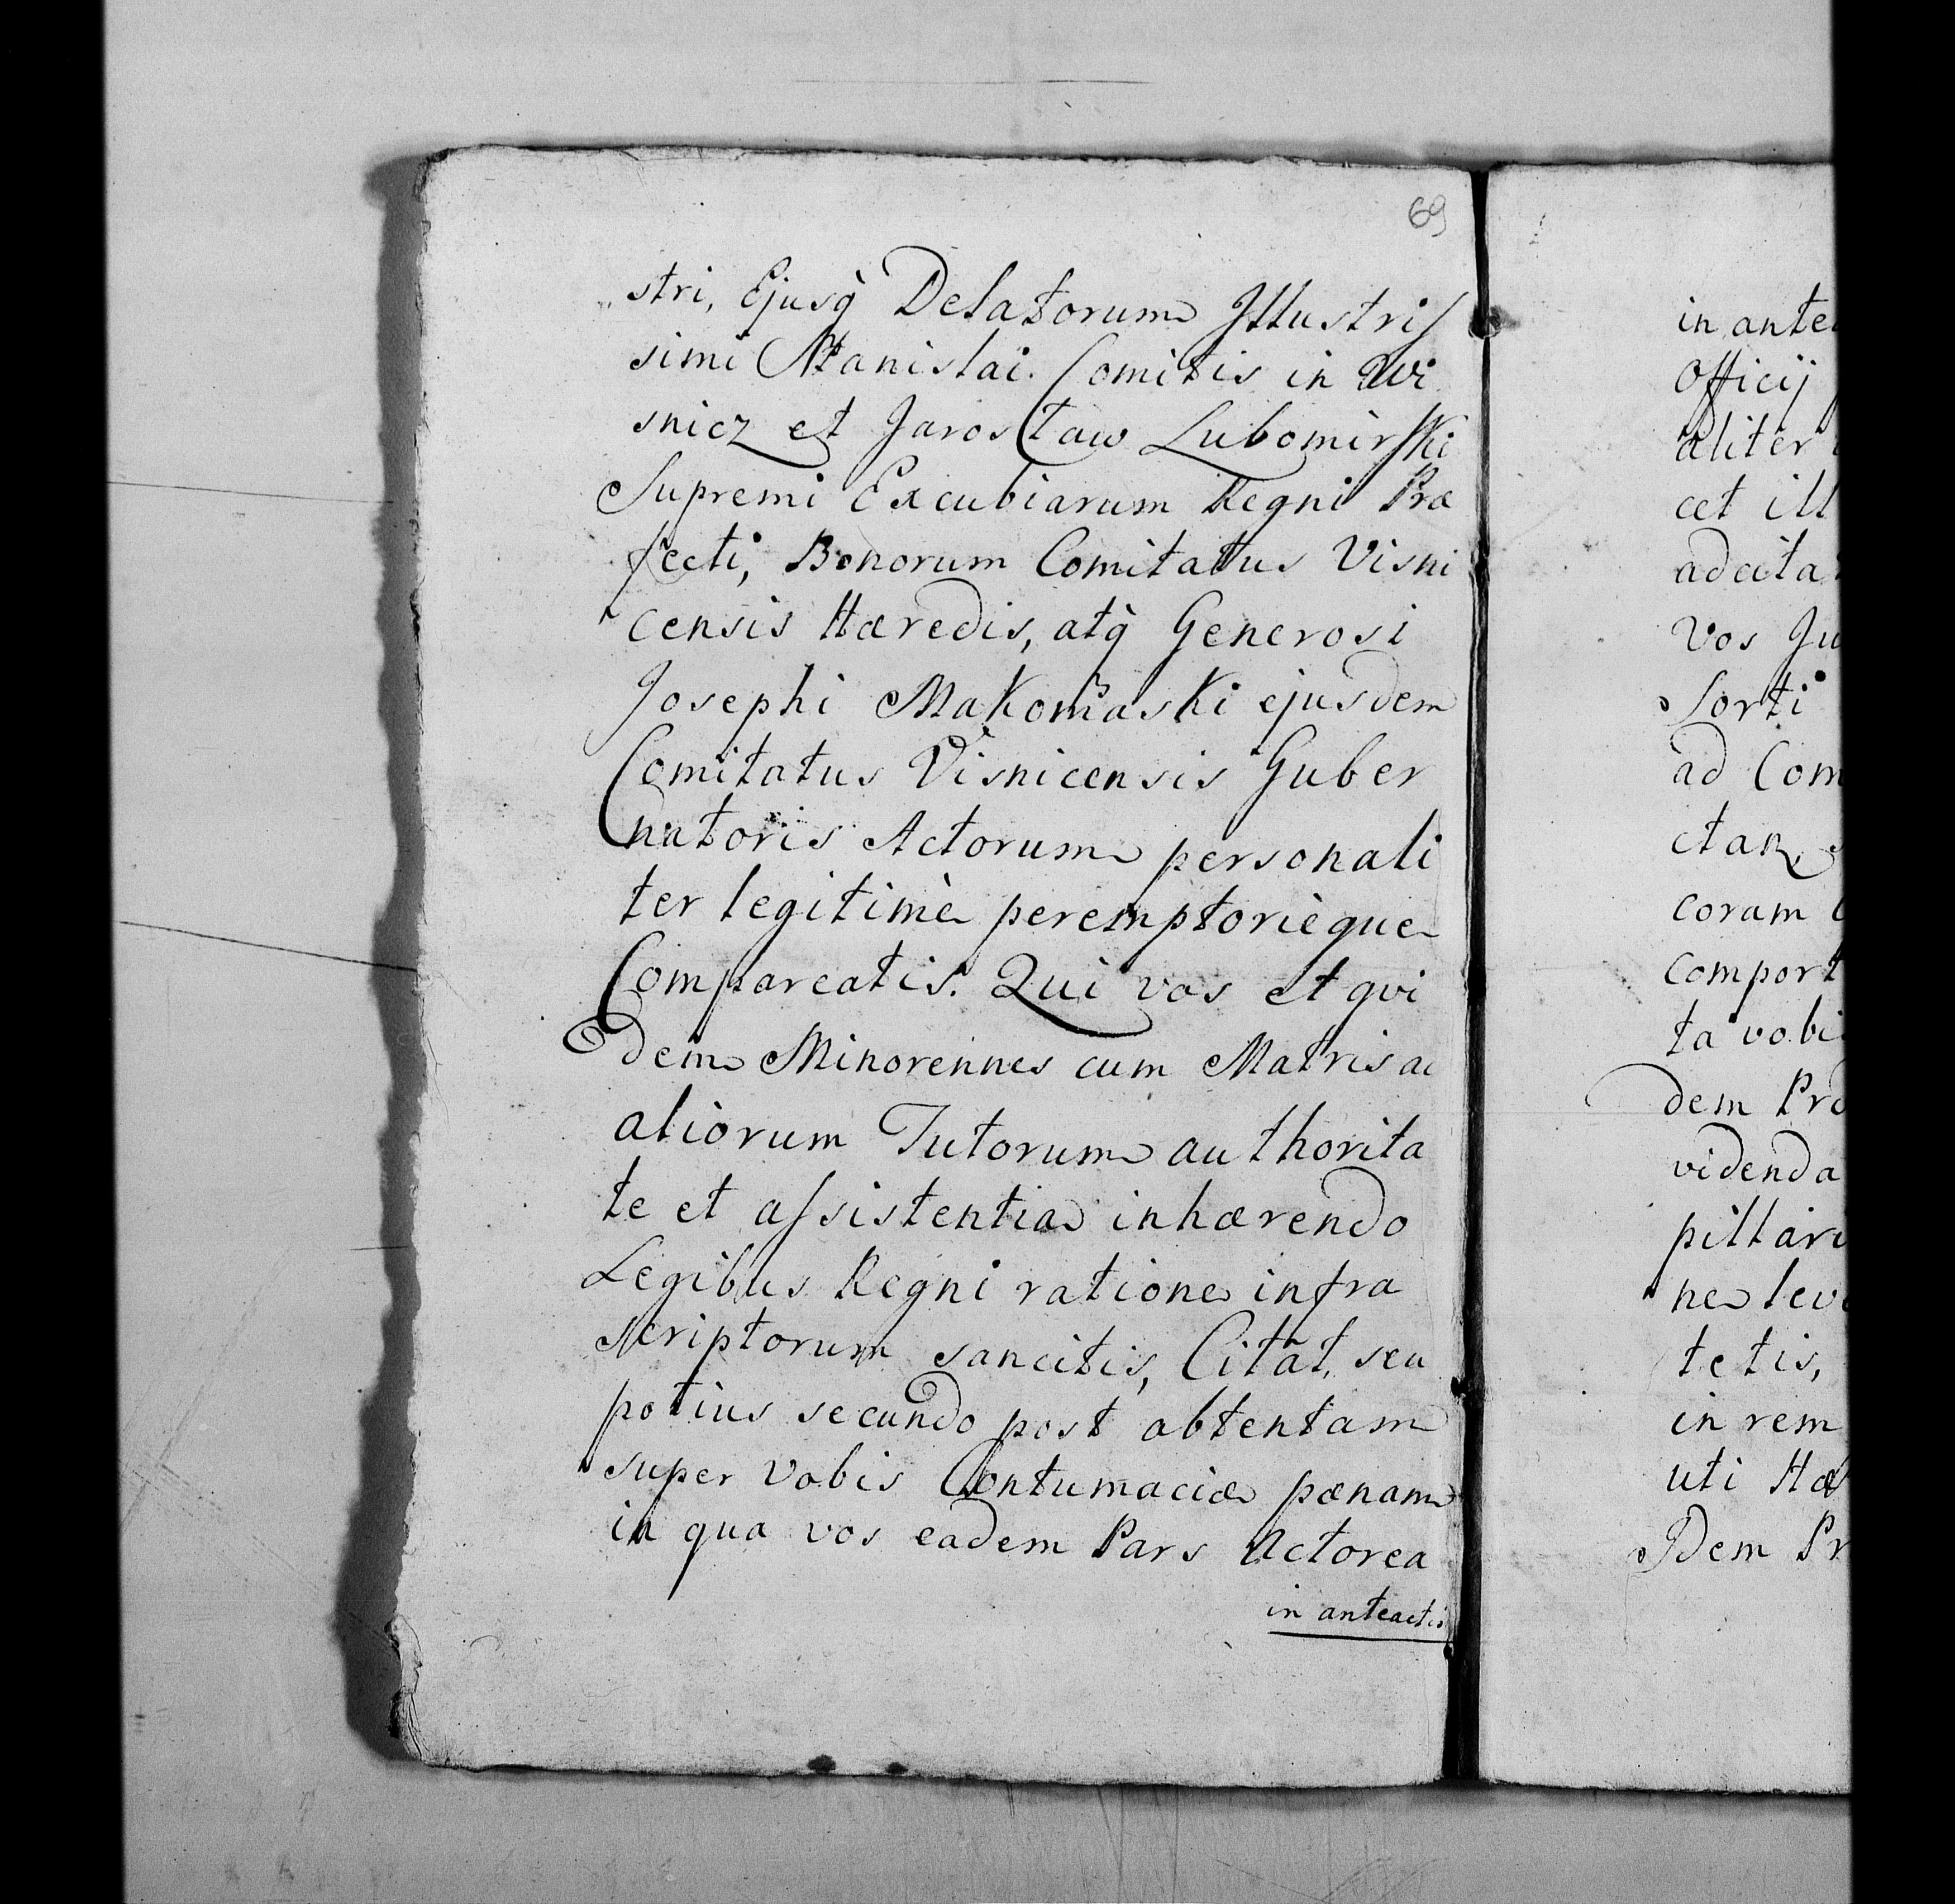 69
stri, Ejusq̀ Delatorum Illustris
simi Stanislai Comitis in Wi
snicz et Jarosław Lubomirski
Supremi Excubiarum Regni Præ
fecti, Bonorum Comitatus Visni
censis Hæredis, atq̀ Generosi
Josephi Makomaski ejusdem
Comitatus Visnicensis Guber
natoris Actorum personali
ter legitimè peremptorièque
Compareatis. Qui vos et qvi
dem Minorennes cum Matris ac
aliorum Tutorum authorita
te et assistentia inhærendo
Legibus Regni ratione infra
scriptorum sancitis, Citat, seu
potius secundo post obtentam
super vobis Contumaciæ pænam
in qua vos eadem Pars Actorea
in anteactis
in ante
Officij
aliter
cet ill
adcita
vos Ju
Sorti
ad Com
ctan
coram
comport
ta vobi
dem Pro
videnda
pillari
ne lev
tetis,
in rem
uti Hæ
Idem Pr